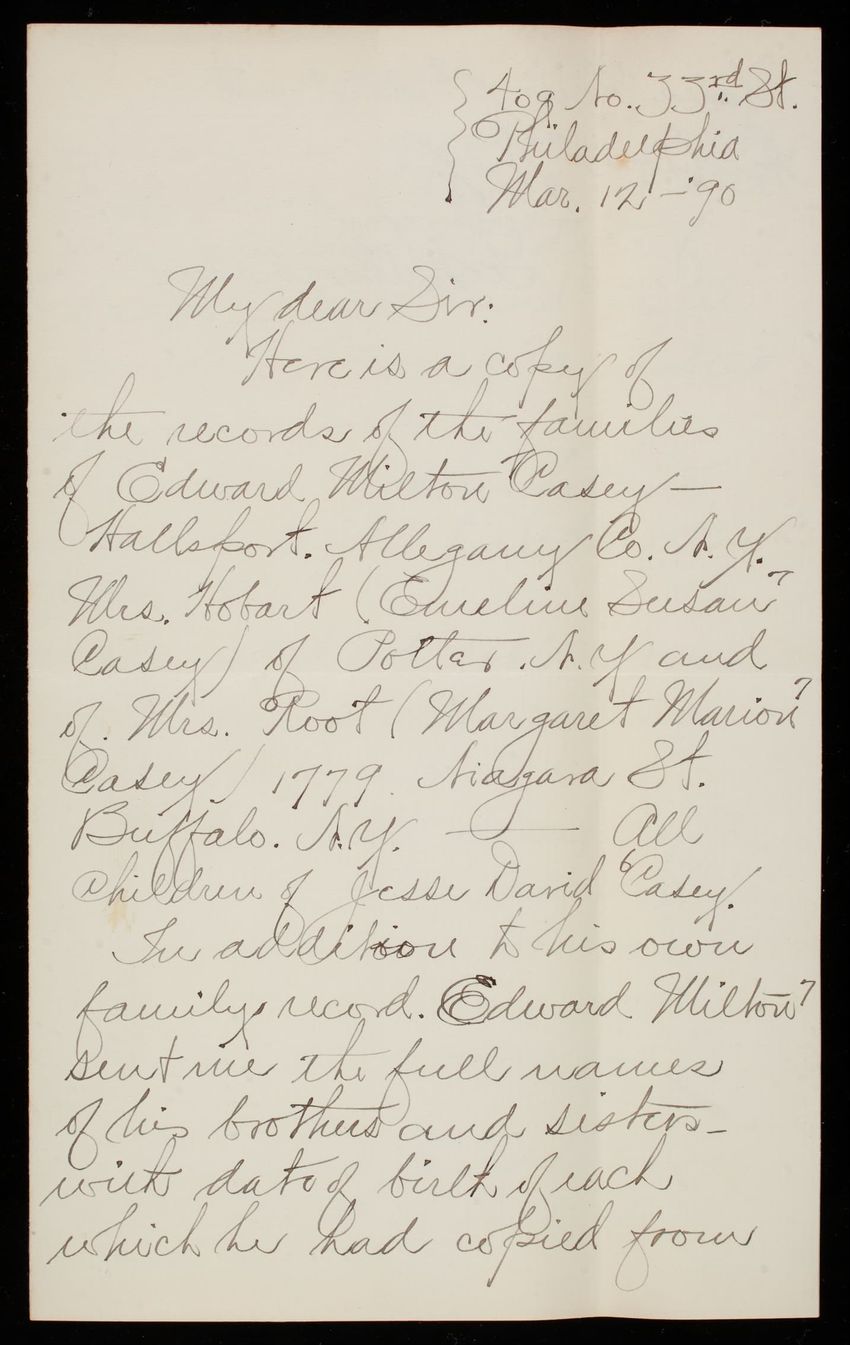 409 No. 33rd St.
Philadelphia
Mar. 12 - '90
My dear Sir:
Here is a copy of
the records of the families
of Edward Milton 7 Casey —
Hallsport. Allegany Co. N. Y.
Mrs. Hobart (Emeline Susan 7
Casey) of Potter. N. Y and
of. Mrs. Root (Margaret Marion 7
Casey) 1779. Niagara St.
Buffalo. N.Y. — All
children of Jesse David 6 Casey.
In addition to his own
family record. Edward Milton 7
sent me the full names
of his brothers and sisters -
with date of birth of each
which he had copied from